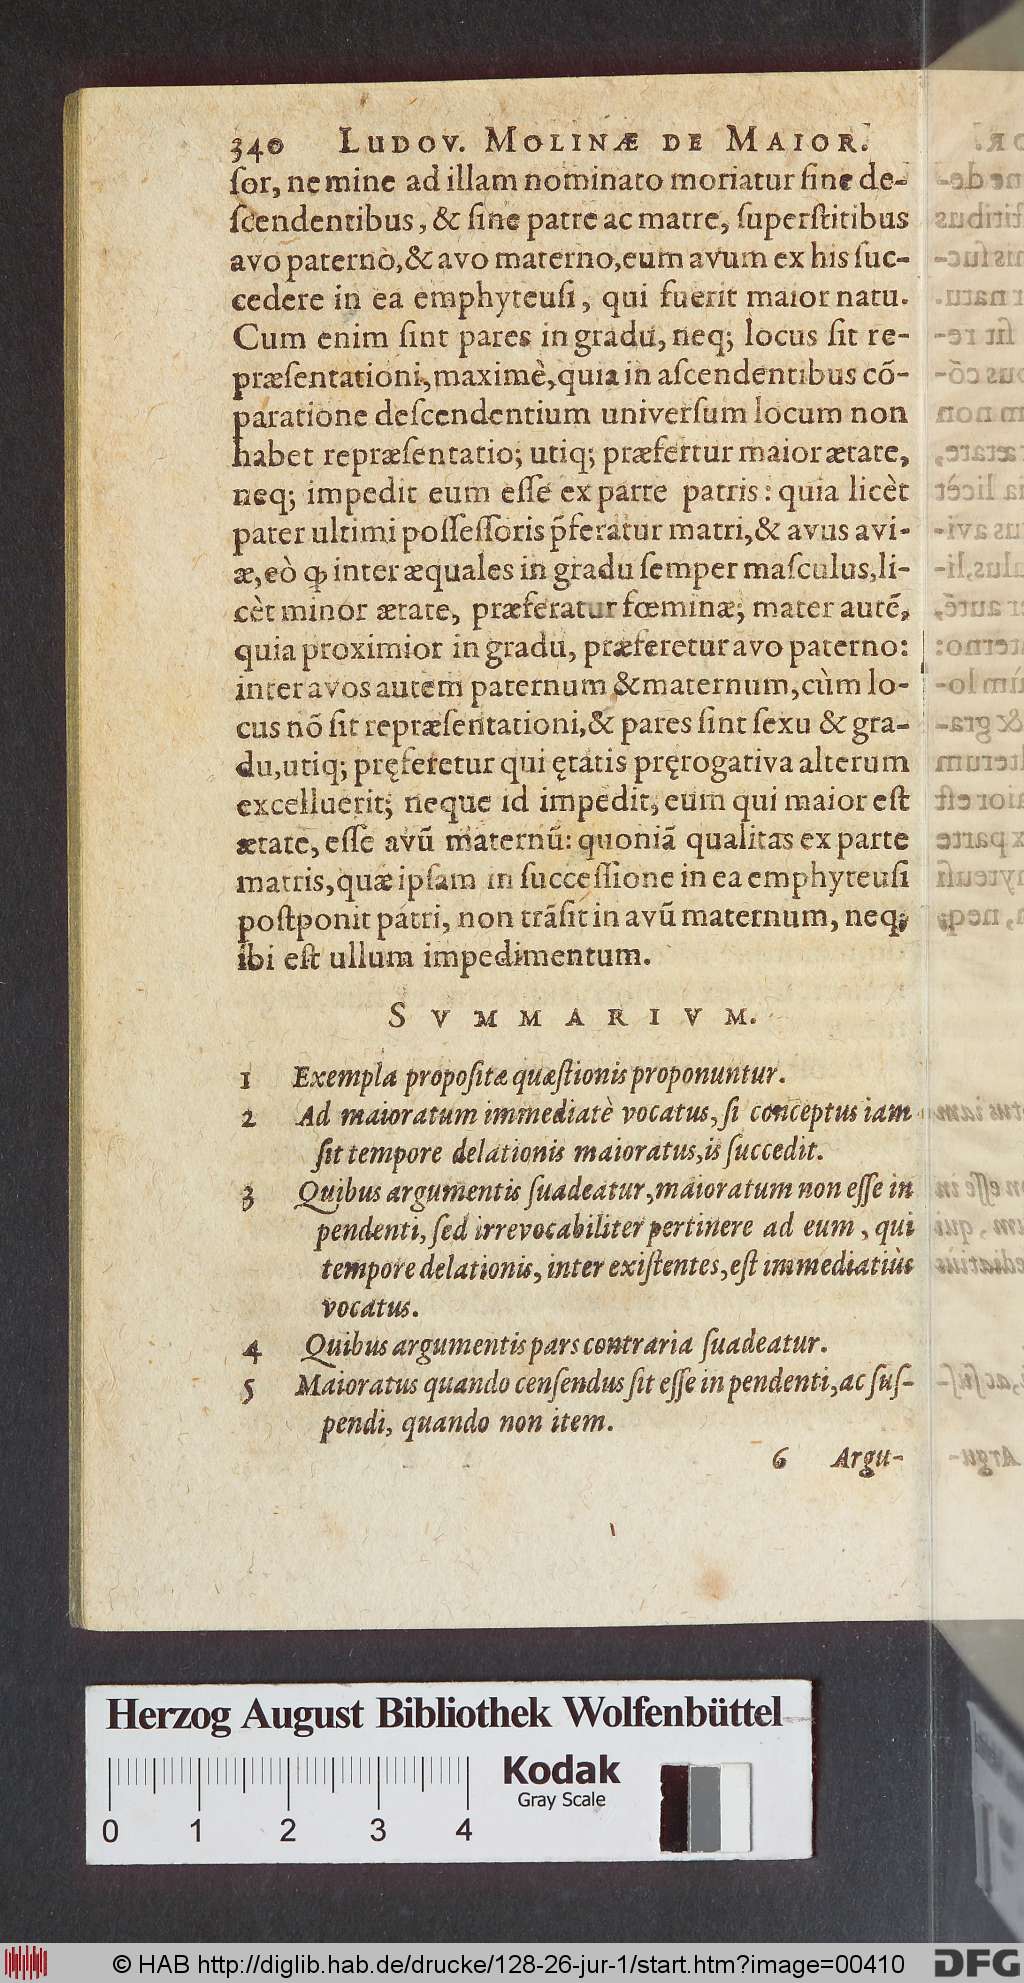 340 LUDOV. MOLINÆ DE MAIOR.
ſor, nemine ad illam nominato moriatur ſine de-
ſcendentibus, & ſine patre ac matre, ſuperſtitibus
avo paterno, & avo materno, eum avum ex his ſuc-
cedere in ea emphyteuſi, qui fuerit maior natu.
Cum enim ſint pares in gradu, neq; locus ſit re-
præſentationi, maximè, quia in aſcendentibus cō-
paratione deſcendentium univerſum locum non
habet repræſentatio; utiq; præfertur maior ætate,
neq; impedit eum eſſe ex parte patris: quia licèt
pater ultimi poſſeſſoris p̄feratur matri, & avus avi-
æ, eò ꝙ inter æquales in gradu ſemper maſculus, li-
cèt minor ætate, præferatur fœminæ; mater autē,
quia proximior in gradu, præferetur avo paterno:
inter avos autem paternum & maternum, cùm lo-
cus nō ſit repræſentationi, & pares ſint ſexu & gra-
du, utiq; pręferetur qui ętatis pręrogativa alterum
excelluerit; neque id impedit, eum qui maior eſt
ætate, eſſe avū maternū: quoniā qualitas ex parte
matris, quæ ipſam in ſucceſſione in ea emphyteuſi
poſtponit patri, non trāſit in avū maternum, neq;
ibi eſt ullum impedimentum.
SVMMARIVM.
1 Exempla propoſitæ quæſtionis proponuntur.
2 Ad maioratum immediatè vocatus, ſi conceptus iam
ſit tempore delationis maioratus, is ſuccedit.
3 Quibus argumentis ſuadeatur, maioratum non eſſe in
pendenti, ſed irrevocabiliter pertinere ad eum, qui
tempore delationis, inter exiſtentes, eſt immediatiùs
vocatus.
4 Quibus argumentis pars contraria ſuadeatur.
5 Maioratus quando cenſendus ſit eſſe in pendenti, ac ſuſ-
pendi, quando non item.
6 Argu-
Herzog August Bibliothek Wolfenbüttel
Kodak
Gray Scale
0 1 2 3 4
© HAB http://diglib.hab.de/drucke/128-26-jur-1/start.htm?image=00410
DFG